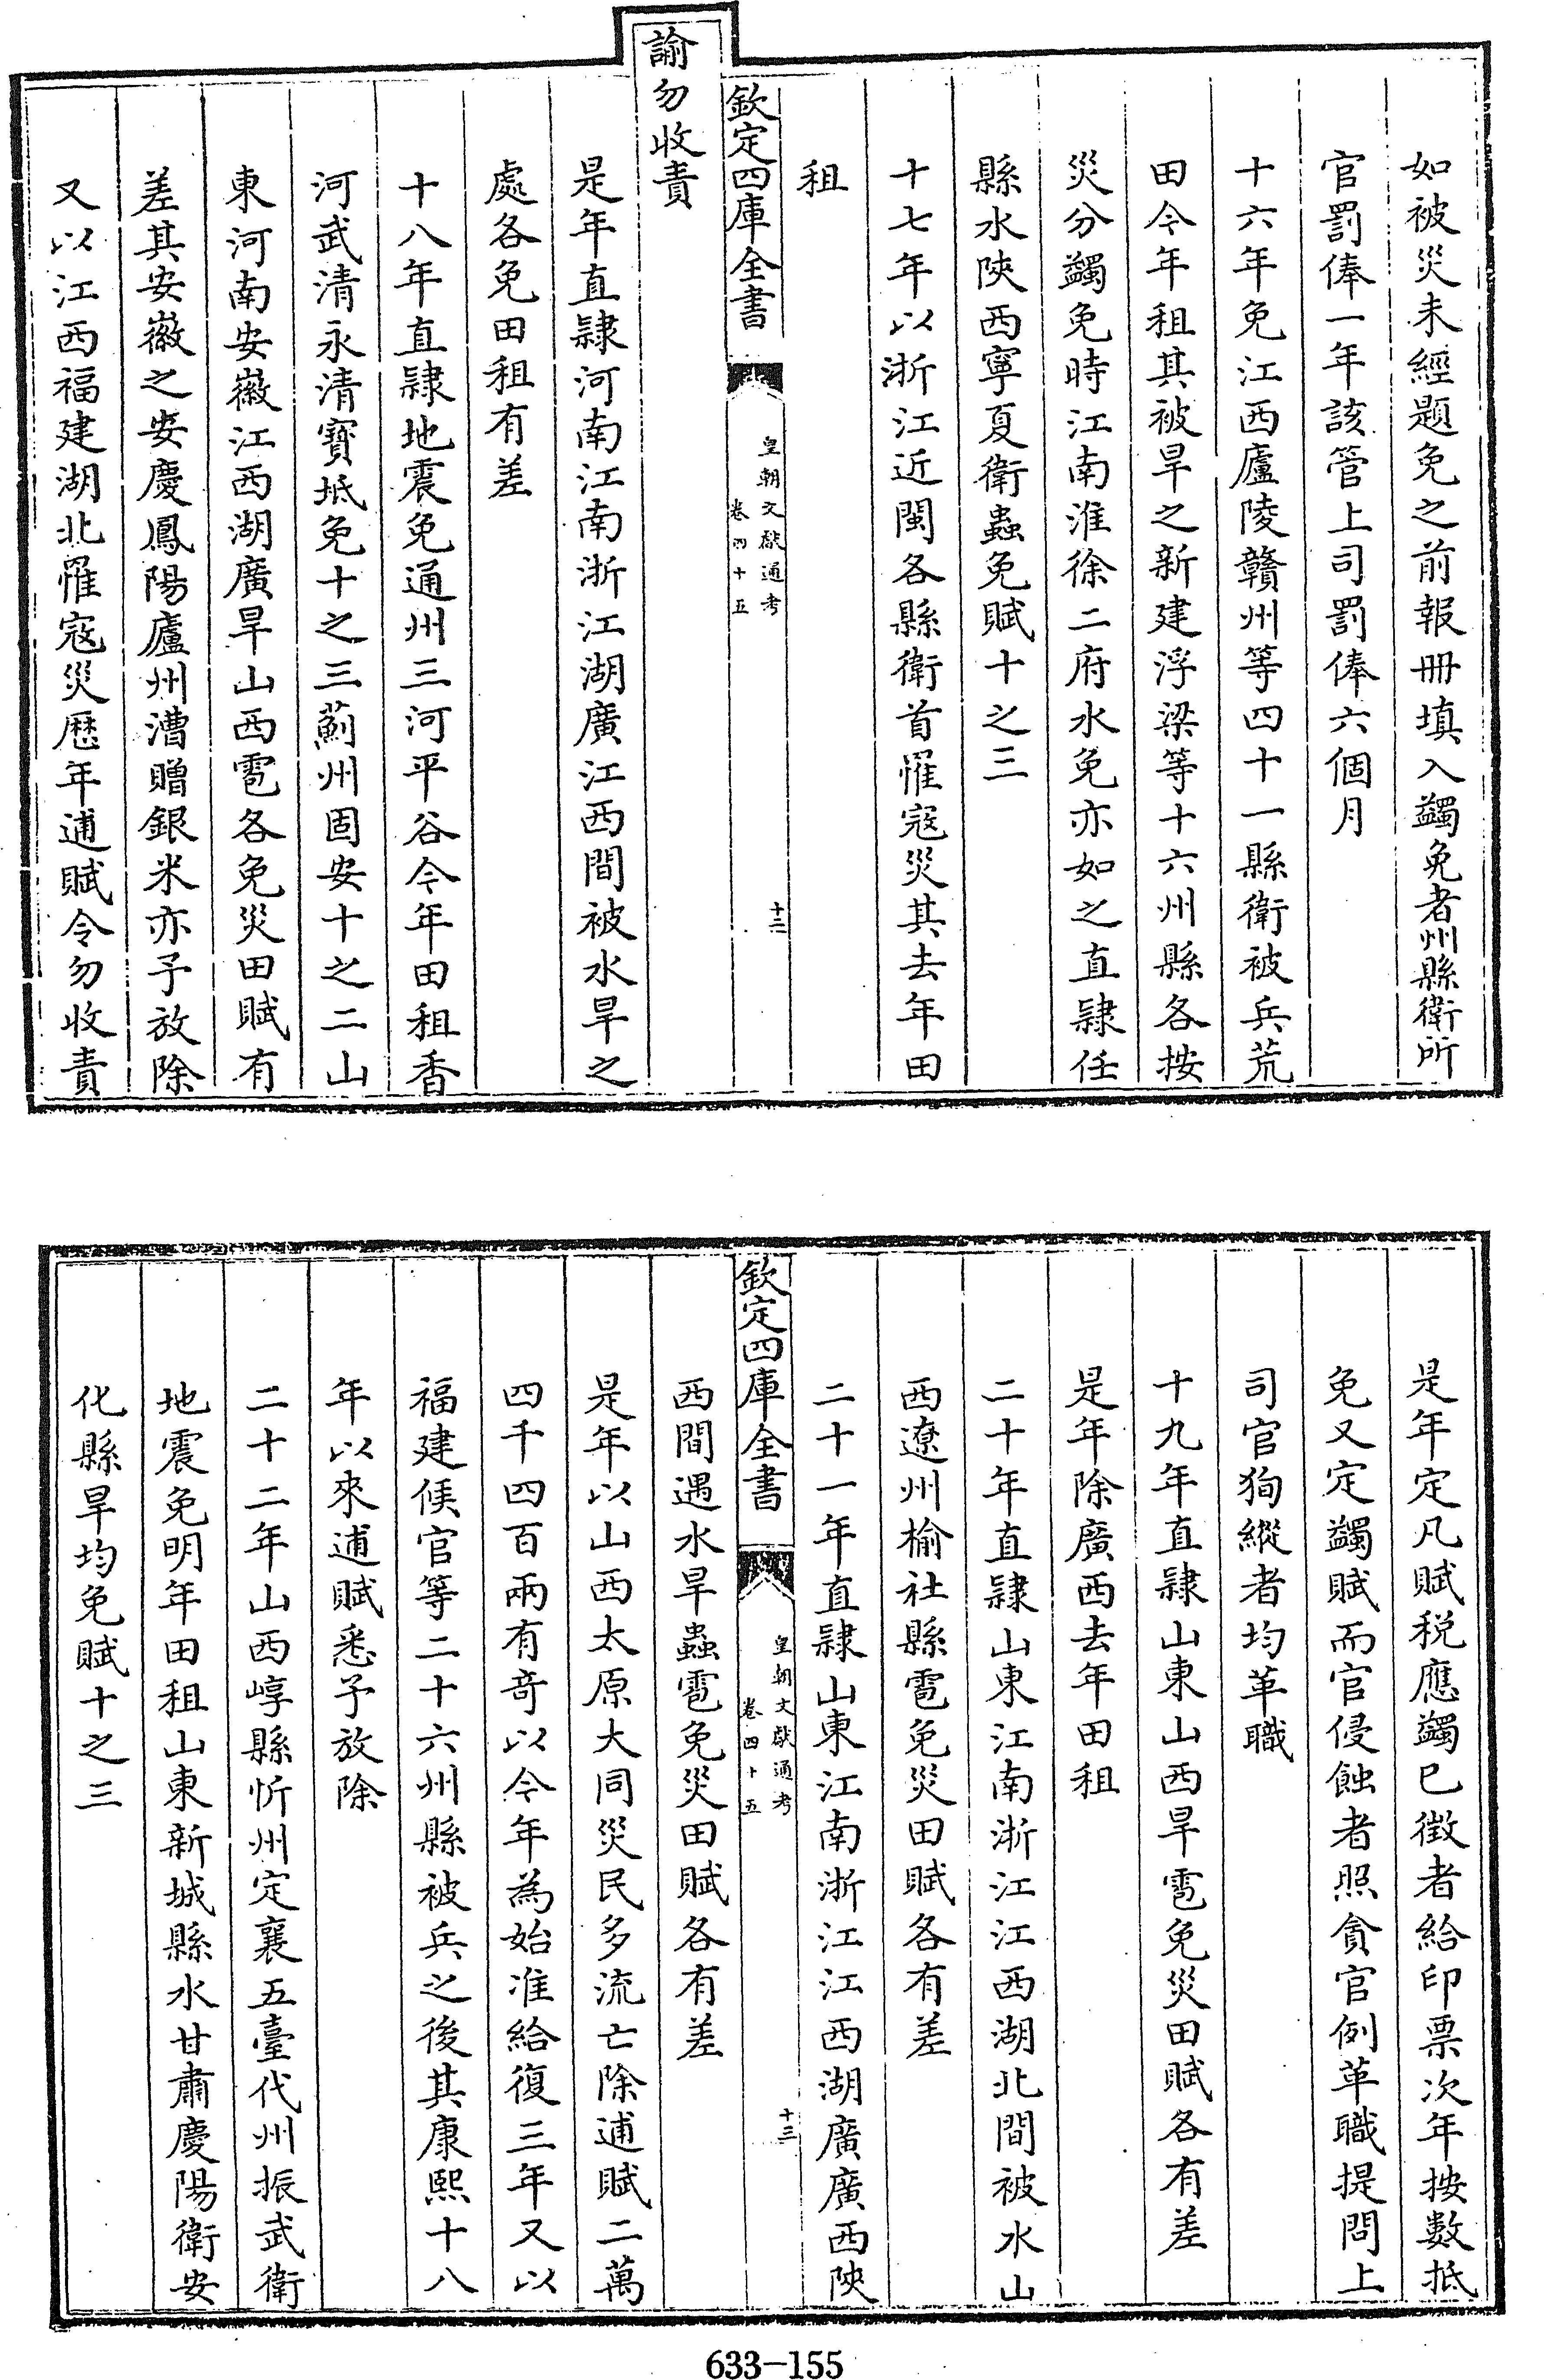 如被災未經題免之前報冊填入蠲免者州縣衛所
官罰俸一年該管上司罰俸六個月
十六年免江西廬陵贛州等四十一縣衛被兵荒
田今年租其被旱之新建浮梁等十六州縣各按
災分蠲免時江南淮徐二府水免亦如之直隸任
縣水陜西寧夏衛蟲免賦十之三
十七年以浙江近閩各縣衛首罹寇災其去年田
租
欽定四庫全書
皇朝文獻通考
卷四十五
十二
諭勿收責
是年直隸河南江南浙江湖廣江西間被水旱之
處各免田租有差
十八年直隸地震免通州三河平谷今年田租香
河武清永清寳坻免十之三薊州固安十之二山
東河南安徽江西湖廣旱山西雹各免災田賦有
差其安徽之安慶鳳陽廬州漕贈銀米亦予放除
又以江西福建湖北罹寇災歷年逋賦令勿收責
是年定凡賦税應蠲已徴者給印票次年按數抵
免又定蠲賦而官侵蝕者照貪官例革職提問上
司官狥縱者均革職
十九年直隸山東山西旱雹免災田賦各有差
是年除廣西去年田租
二十年直隸山東江南浙江江西湖北間被水山
西遼州榆社縣雹免災田賦各有差
二十一年直隸山東江南浙江江西湖廣廣西陜
欽定四庫全書
皇朝文獻通考
卷四十五
十三
西間遇水旱蟲雹免災田賦各有差
是年以山西太原大同災民多流亡除逋賦二萬
四千四百兩有竒以今年為始准給復三年又以
福建候官等二十六州縣被兵之後其康熙十八
年以來逋賦悉予放除
二十二年山西崞縣忻州定襄五臺代州振武衛
地震免明年田租山東新城縣水甘肅慶陽衛安
化縣旱均免賦十之三
633-155